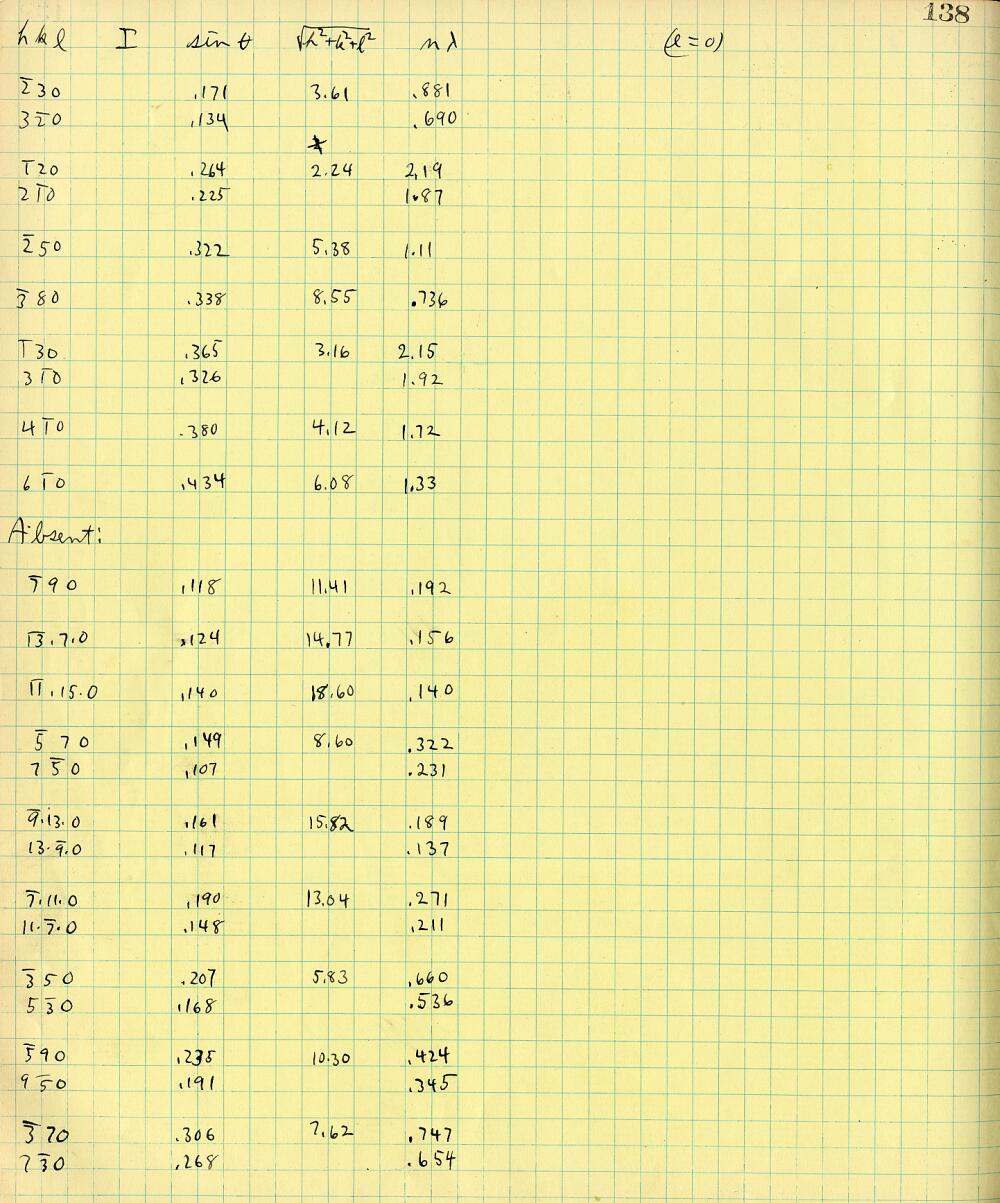 138
h k l I sin θ √h²+k²+l² nλ (l = 0)
2̅ 3 0 .171 3.61 .881
3 2̅ 0 .134 .690
1̅ 2 0 .264 2.24 2.19
2 1̅ 0 .225 1.87
2̅ 5 0 .322 5.38 1.11
3̅ 8 0 .338 8.55 .736
1̅ 3 0 .365 3.16 2.15
3 1̅ 0 .326 1.92
4 1̅ 0 .380 4.12 1.72
6 1̅ 0 .434 6.08 1.33
Absent:
7̅ 9 0 .118 11.41 .192
1̅3̅.7.0 .124 14.77 .156
1̅1̅.15.0 .140 18.60 .140
5̅ 7 0 .149 8.60 .322
7 5̅ 0 .107 .231
9̅.13.0 .161 15.82 .189
13.9̅.0 .117 .137
7̅.11.0 .190 13.04 .271
11.7̅.0 .148 .211
3̅ 5 0 .207 5.83 .660
5 3̅ 0 .168 .536
5̅ 9 0 .235 10.30 .424
9 5̅ 0 .191 .345
3̅ 7 0 .306 7.62 .747
7 3̅ 0 .268 .654